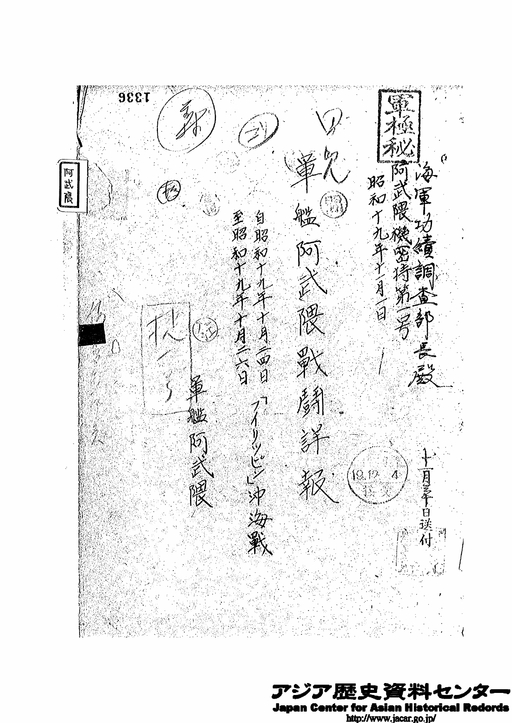 1336
軍極秘
海軍功績調査部長殿
阿武隈機密特第一号
昭和十九年十一月一日
十一月三十日送付
19.12.4
軍艦阿武隈戰鬪詳報
自昭和十九年十月二四日
至昭和十九年十月二六日
「フイリツピン」沖海戰
軍艦阿武隈
阿武隈
アジア歴史資料センター
Japan Center for Asian Historical Records
http://www.jacar.go.jp/